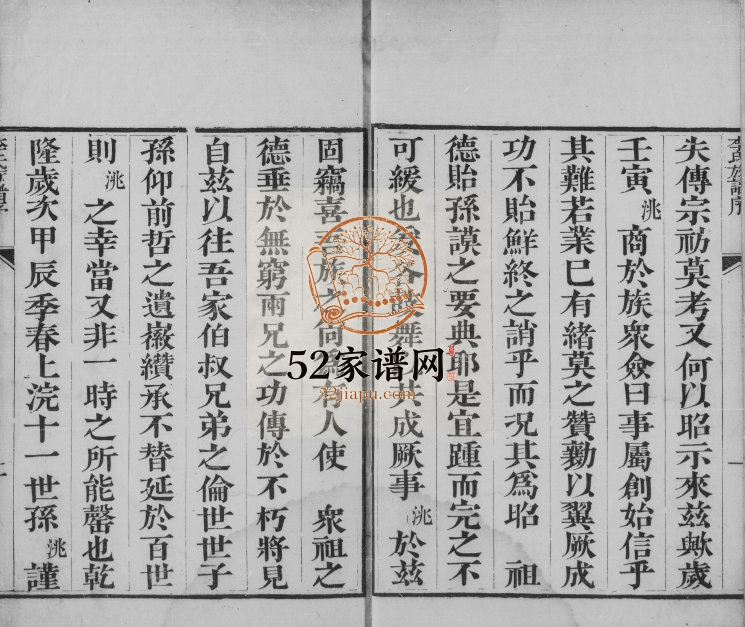 李氏族譜序
失傳宗祊莫考又何以昭示來茲歟歲
壬寅洮商於族衆僉曰事屬創始信乎
其難若業已有緒莫之贊勷以翼厥成
功不貽鮮終之誚乎而况其為昭 祖
德貽孫謨之要典耶是宜踵而完之不
可緩也爰各鼓舞共成厥事洮於茲
固竊喜吾族之尚有人使 衆祖之
德垂於無窮兩兄之功傳於不朽將見
自茲以往吾家伯叔兄弟之倫世世子
孫仰前哲之遺徽纘承不替延於百世
則洮之幸當又非一時之所能罄也乾
隆歲次甲辰季春上浣十一世孫洮謹
52家谱网
52jiapu.com